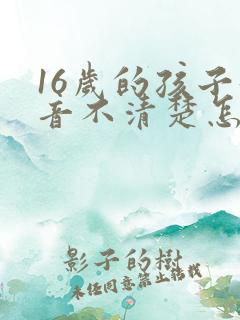 16歲的孩子
音不清楚怎
影子的樹
未经同意禁止转载